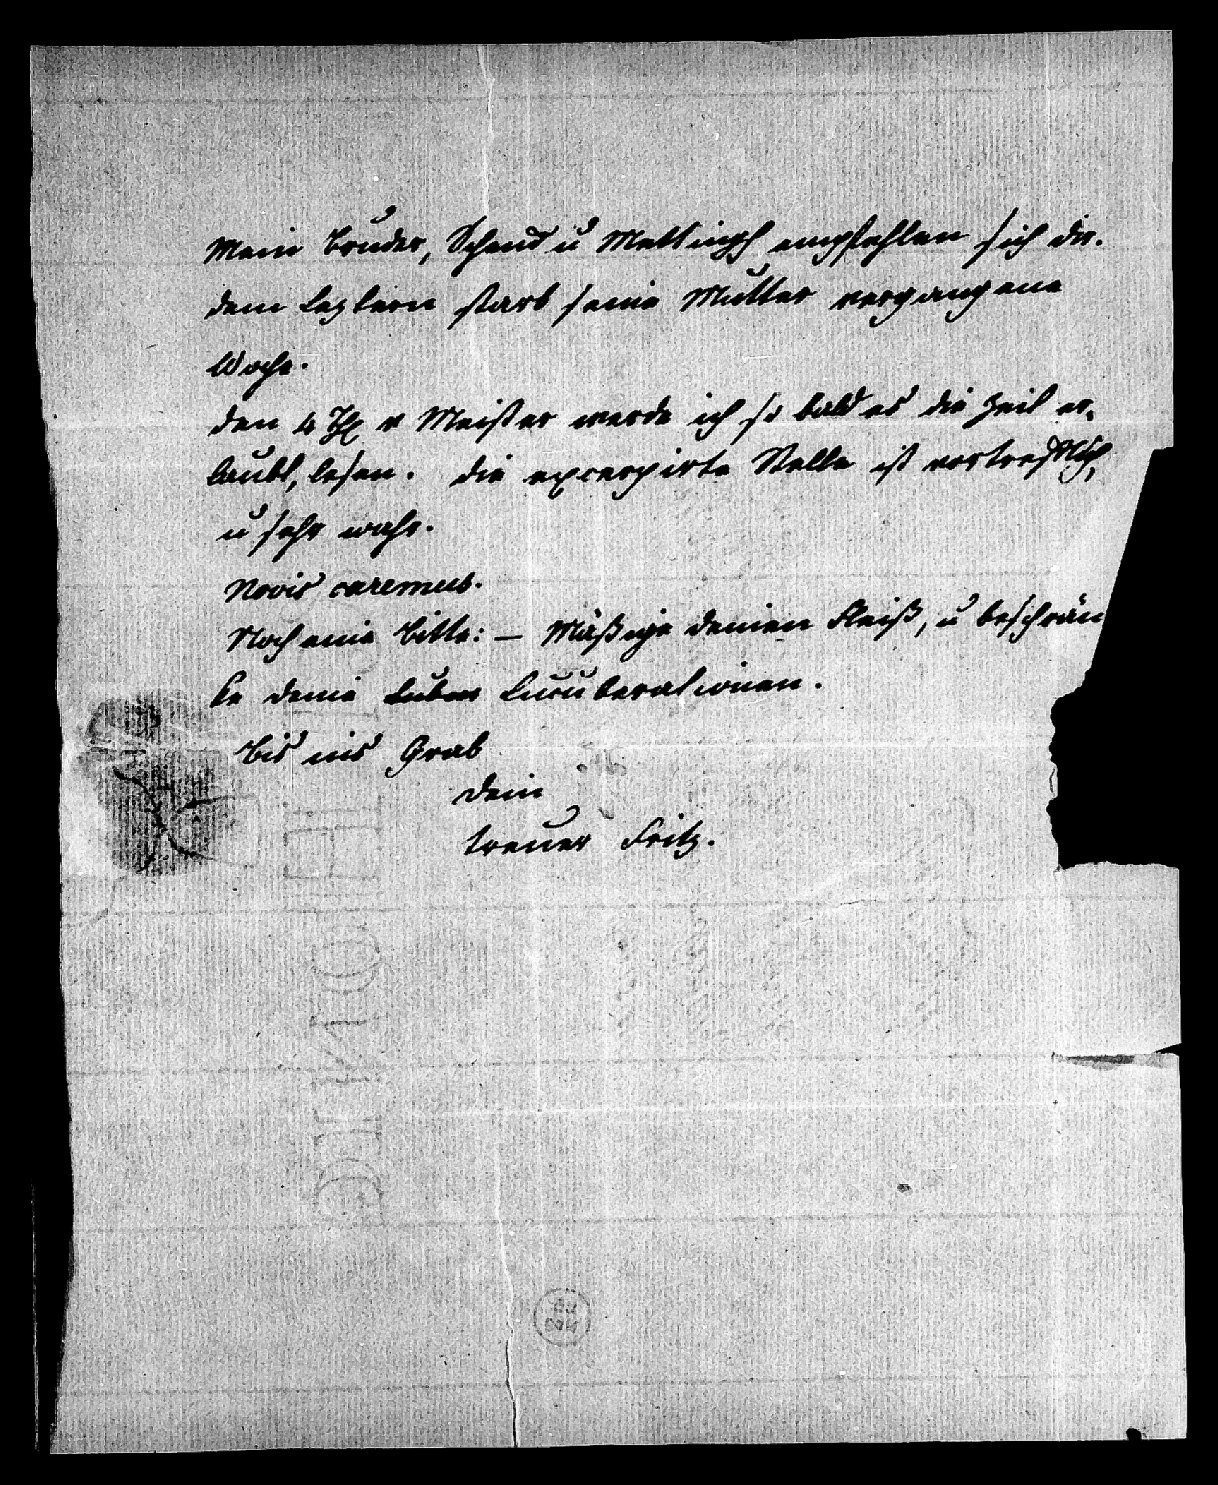 Mein Bruder, Schend u Mettingh empfehlen sich dir.
dem leztern starb seine Mutter vergangene
Woche.
den 4 Th v Meister werde ich so bald es die Zeit er„
laubt, lesen. die excerpirte Stelle ist vortreflich,
u sehr wahr.
Novis caremus.
Noch eine Bitte: – Mäßige deinen Fleiß, u beschrän
ke deine Lucuberationen.
Bis ins Grab
dein
treuer Fritz.